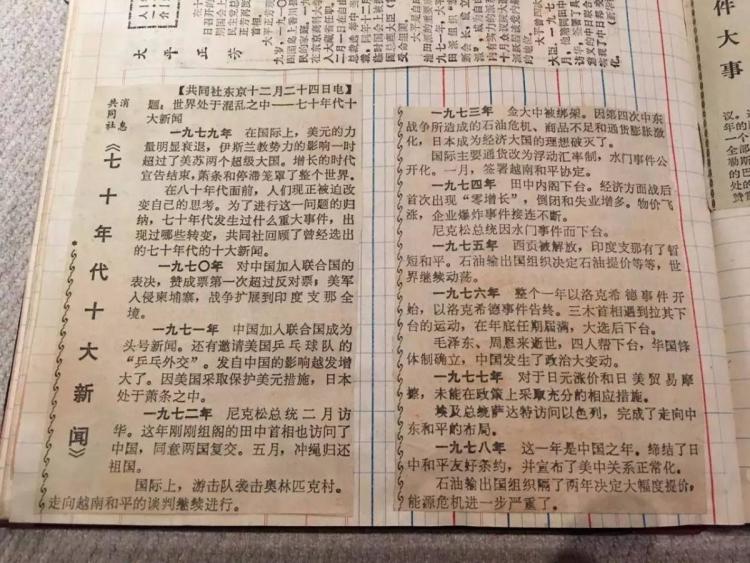 大平正芳
件大事
共同社
消息
《七十年代十大新闻》
【共同社东京十二月二十四日电】
题：世界处于混乱之中——七十年代十
大新闻
一九七九年 在国际上，美元的力
量明显衰退，伊斯兰教势力的影响一时
超过了美苏两个超级大国。增长的时代
宣告结束，萧条和停滞笼罩了整个世界。
在八十年代面前，人们现正被迫改
变自己的思考。为了进行这一问题的归
纳，七十年代发生过什么重大事件，出
现过哪些转变，共同社回顾了曾经选出
的七十年代的十大新闻。
一九七〇年 对中国加入联合国的
表决，赞成票第一次超过反对票；美军
入侵柬埔寨，战争扩展到印度支那全
境。
一九七一年 中国加入联合国成为
头号新闻。还有邀请美国乒乓球队的
“乒乓外交”。发自中国的影响越发增
大了。因美国采取保护美元措施，日本
处于萧条之中。
一九七二年 尼克松总统二月访
华。这年刚刚组阁的田中首相也访问了
中国，同意两国复交。五月，冲绳归还
祖国。
国际上，游击队袭击奥林匹克村。
走向越南和平的谈判继续进行。
一九七三年 金大中被绑架。因第四次中东
战争所造成的石油危机、商品不足和通货膨胀激
化，日本成为经济大国的理想破灭了。
国际主要通货改为浮动汇率制，水门事件公
开化。一月，签署越南和平协定。
一九七四年 田中内阁下台。经济方面战后
首次出现“零增长”，倒闭和失业增多。物价飞
涨，企业爆炸事件接连不断。
尼克松总统因水门事件而下台。
一九七五年 西贡被解放，印度支那有了暂
短和平。石油输出国组织决定石油提价等等，世
界继续动荡。
一九七六年 整个一年以洛克希德事件开
始，以洛克希德事件告终。三木首相遇到拉其下
台的运动，在年底任期届满，大选后下台。
毛泽东、周恩来逝世，四人帮下台，华国锋
体体制确立，中国发生了政治大变动。
一九七七年 对于日元涨价和日美贸易摩
擦，未能在政策上采取充分的相应措施。
埃及总统萨达特访问以色列，完成了走向中
东和平的布局。
一九七八年 这一年是中国之年。缔结了日
中和平友好条约，并宣布了美中关系正常化。
石油输出国组织隔了两年决定大幅度提价，
能源危机进一步严重了。